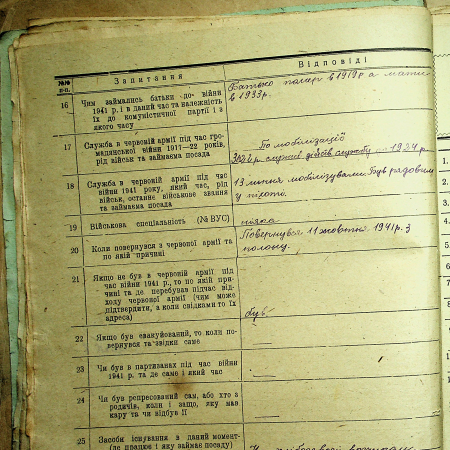 №№ п-п. Запитання Відповіді
16 Чим займались батьки до війни
1941 р. і в даний час та належність
їх до комуністичної партії і з
якого часу
Батько помер в 1919 р а мати
в 1933 р.
17 Служба в червоній армії під час гро-
мадянської війни 1917—22 років,
рід військ та займаєма посада
По мобілізації
службу по 1924 р.
18 Служба в червоній армії під час
війни 1941 року, який час, рід
військ, останнє військове звання
та займаєма посада
13 липня мобілізували. Був рядовим
у піхоті.
19 Військова спеціяльність (№ ВУС)
ніяка
20 Коли повернувся з червоної армії та
по якій причині
Повернувся 11 жовтня 1941 р. з
полону.
21 Якщо не був в червоній армії під
час війни 1941 р., то по якій при-
чині та де перебував підчас від-
ходу червоної армії (чим може
підтвердити, а коли свідками то їх
адреса)
був
22 Якщо був евакуйований, то коли по-
вернувся та звідки саме
23 Чи був в партизанах під час війни
1941 р. та де саме і який час
24 Чи був репресований сам, або хто з
родичів, коли і защо, яку мав
кару та чи відбув її
25 Засоби існування в даний момент-
(де працює і яку займає посаду)